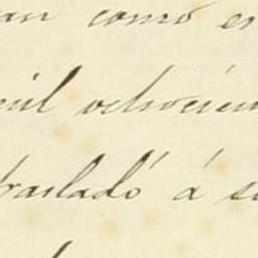 an como es
mil ochocien
trasladó á s